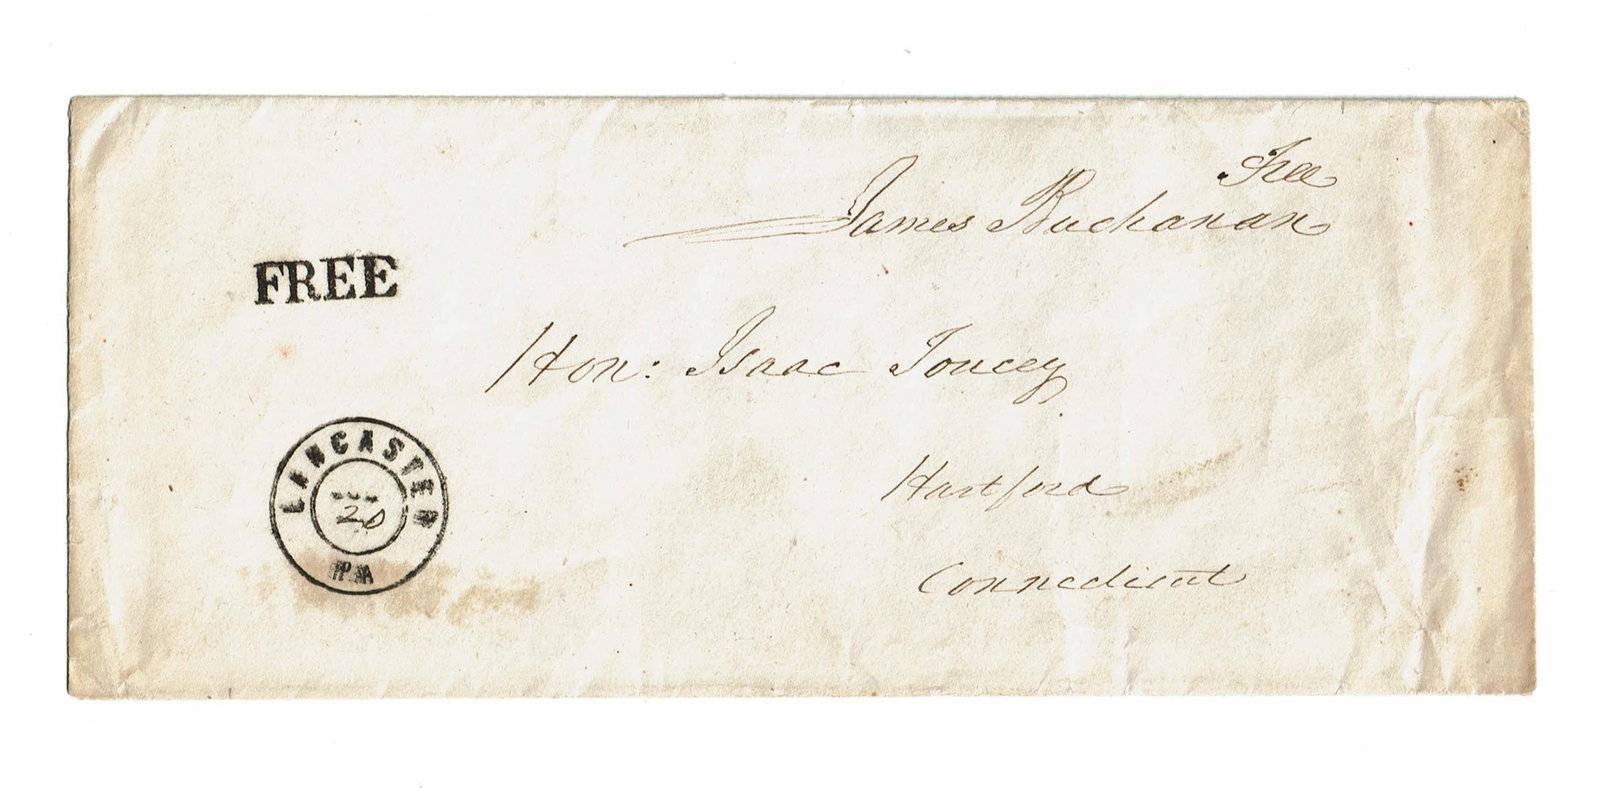 Free
James Buchanan
FREE
Hon: Isaac Toucey
Hartford
Connecticut
LANCASTER
20
PA